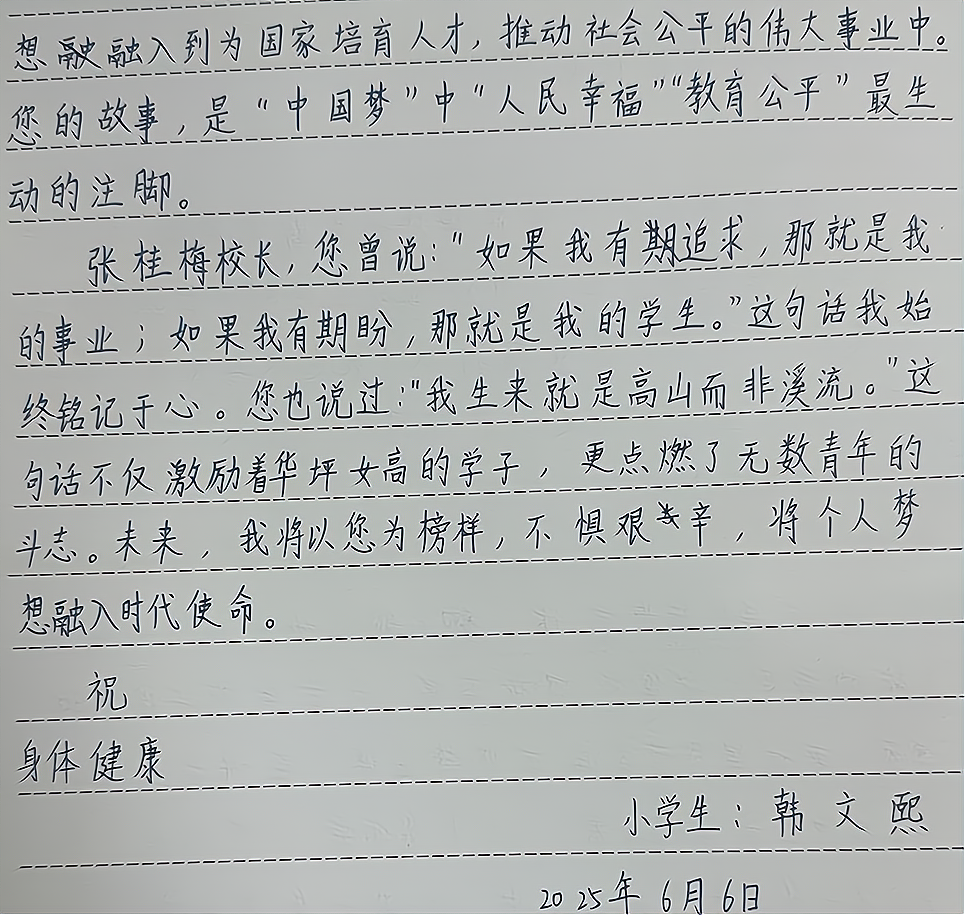 想融融入到为国家培育人才,推动社会公平的伟大事业中。
您的故事,是“中国梦”中“人民幸福”“教育公平”最生
动的注脚。
张桂梅校长,您曾说:“如果我有期追求,那就是我
的事业;如果我有期盼,那就是我的学生。”这句话我始
终铭记于心。您也说过:“我生来就是高山而非溪流。”这
句话不仅激励着华坪女高的学子,更点燃了无数青年的
斗志。未来,我将以您为榜样,不惧艰辛,将个人梦
想融入时代使命。
祝
身体健康
小学生:韩文熙
2025年6月6日